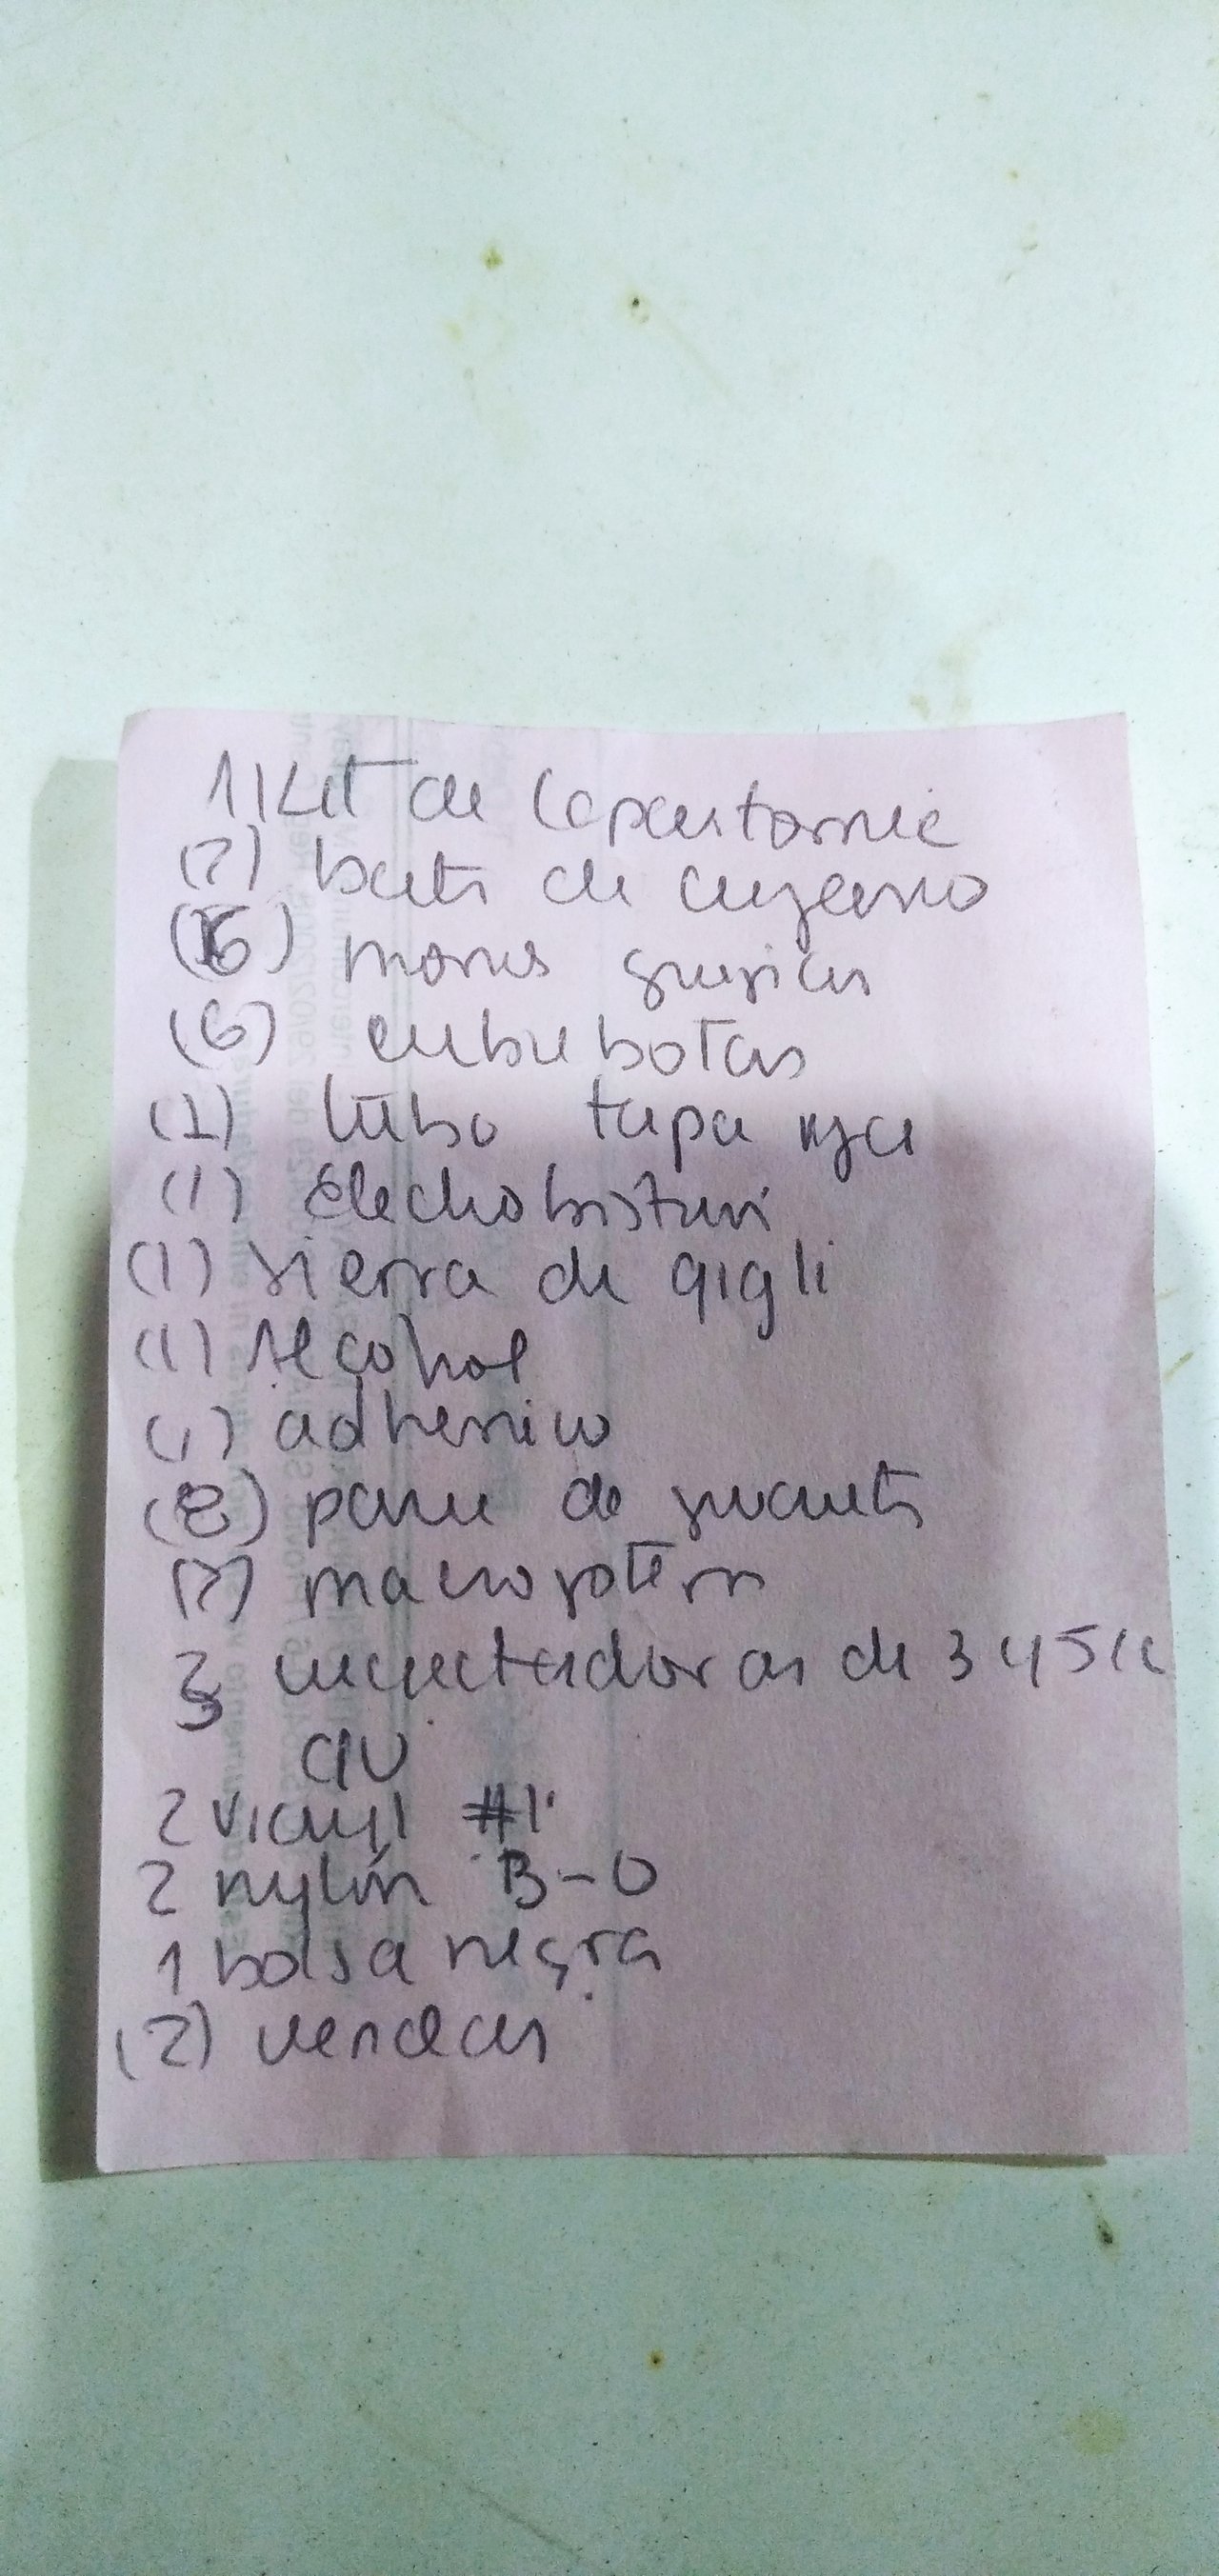 1 Kit de laparotomia
(2) bata de cirujano
(6) monos quirurgicas
(6) cubre botas
(1) tubo tapa roja
(1) Electrobisturi
(1) sierra de gigli
(1) Alcohol
(1) adhesivo
(8) pares de guantes
(2) macrogoteros
3 inyectadoras de 3 y 5 cc
c/u
2 vicryl #1
2 nylon 3-0
1 bolsa negra
(2) vendas